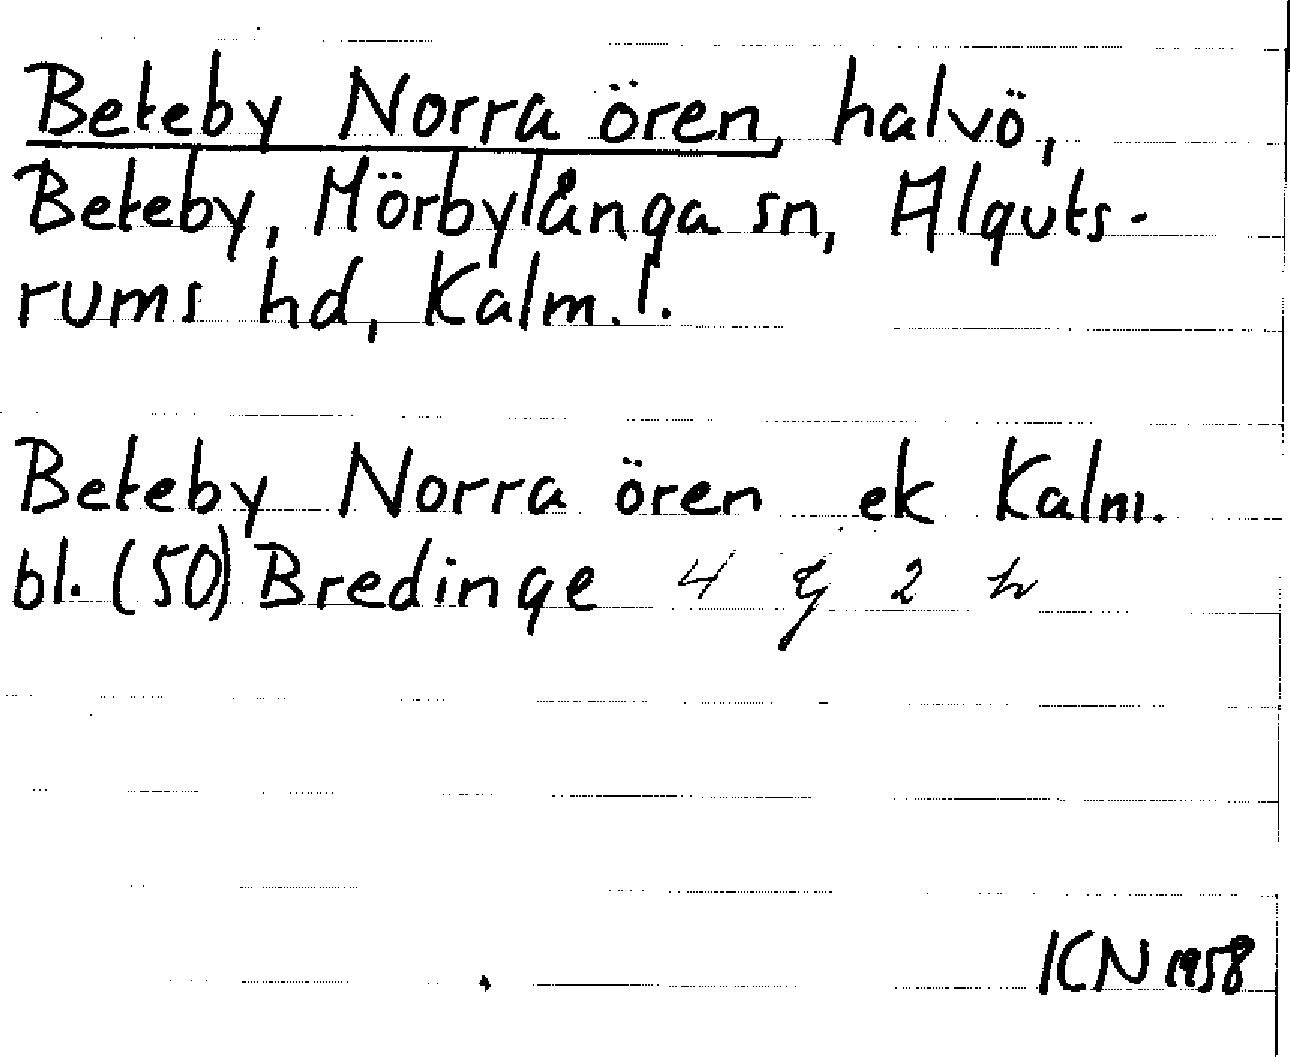 Beteby Norra ören, halvö,
Beteby, Mörbylånga sn, Alguts-
rums hd, Kalm. l.
Beteby Norra ören ek Kalm.
bl. (50) Bredinge 4 g 2 h
KN 1958